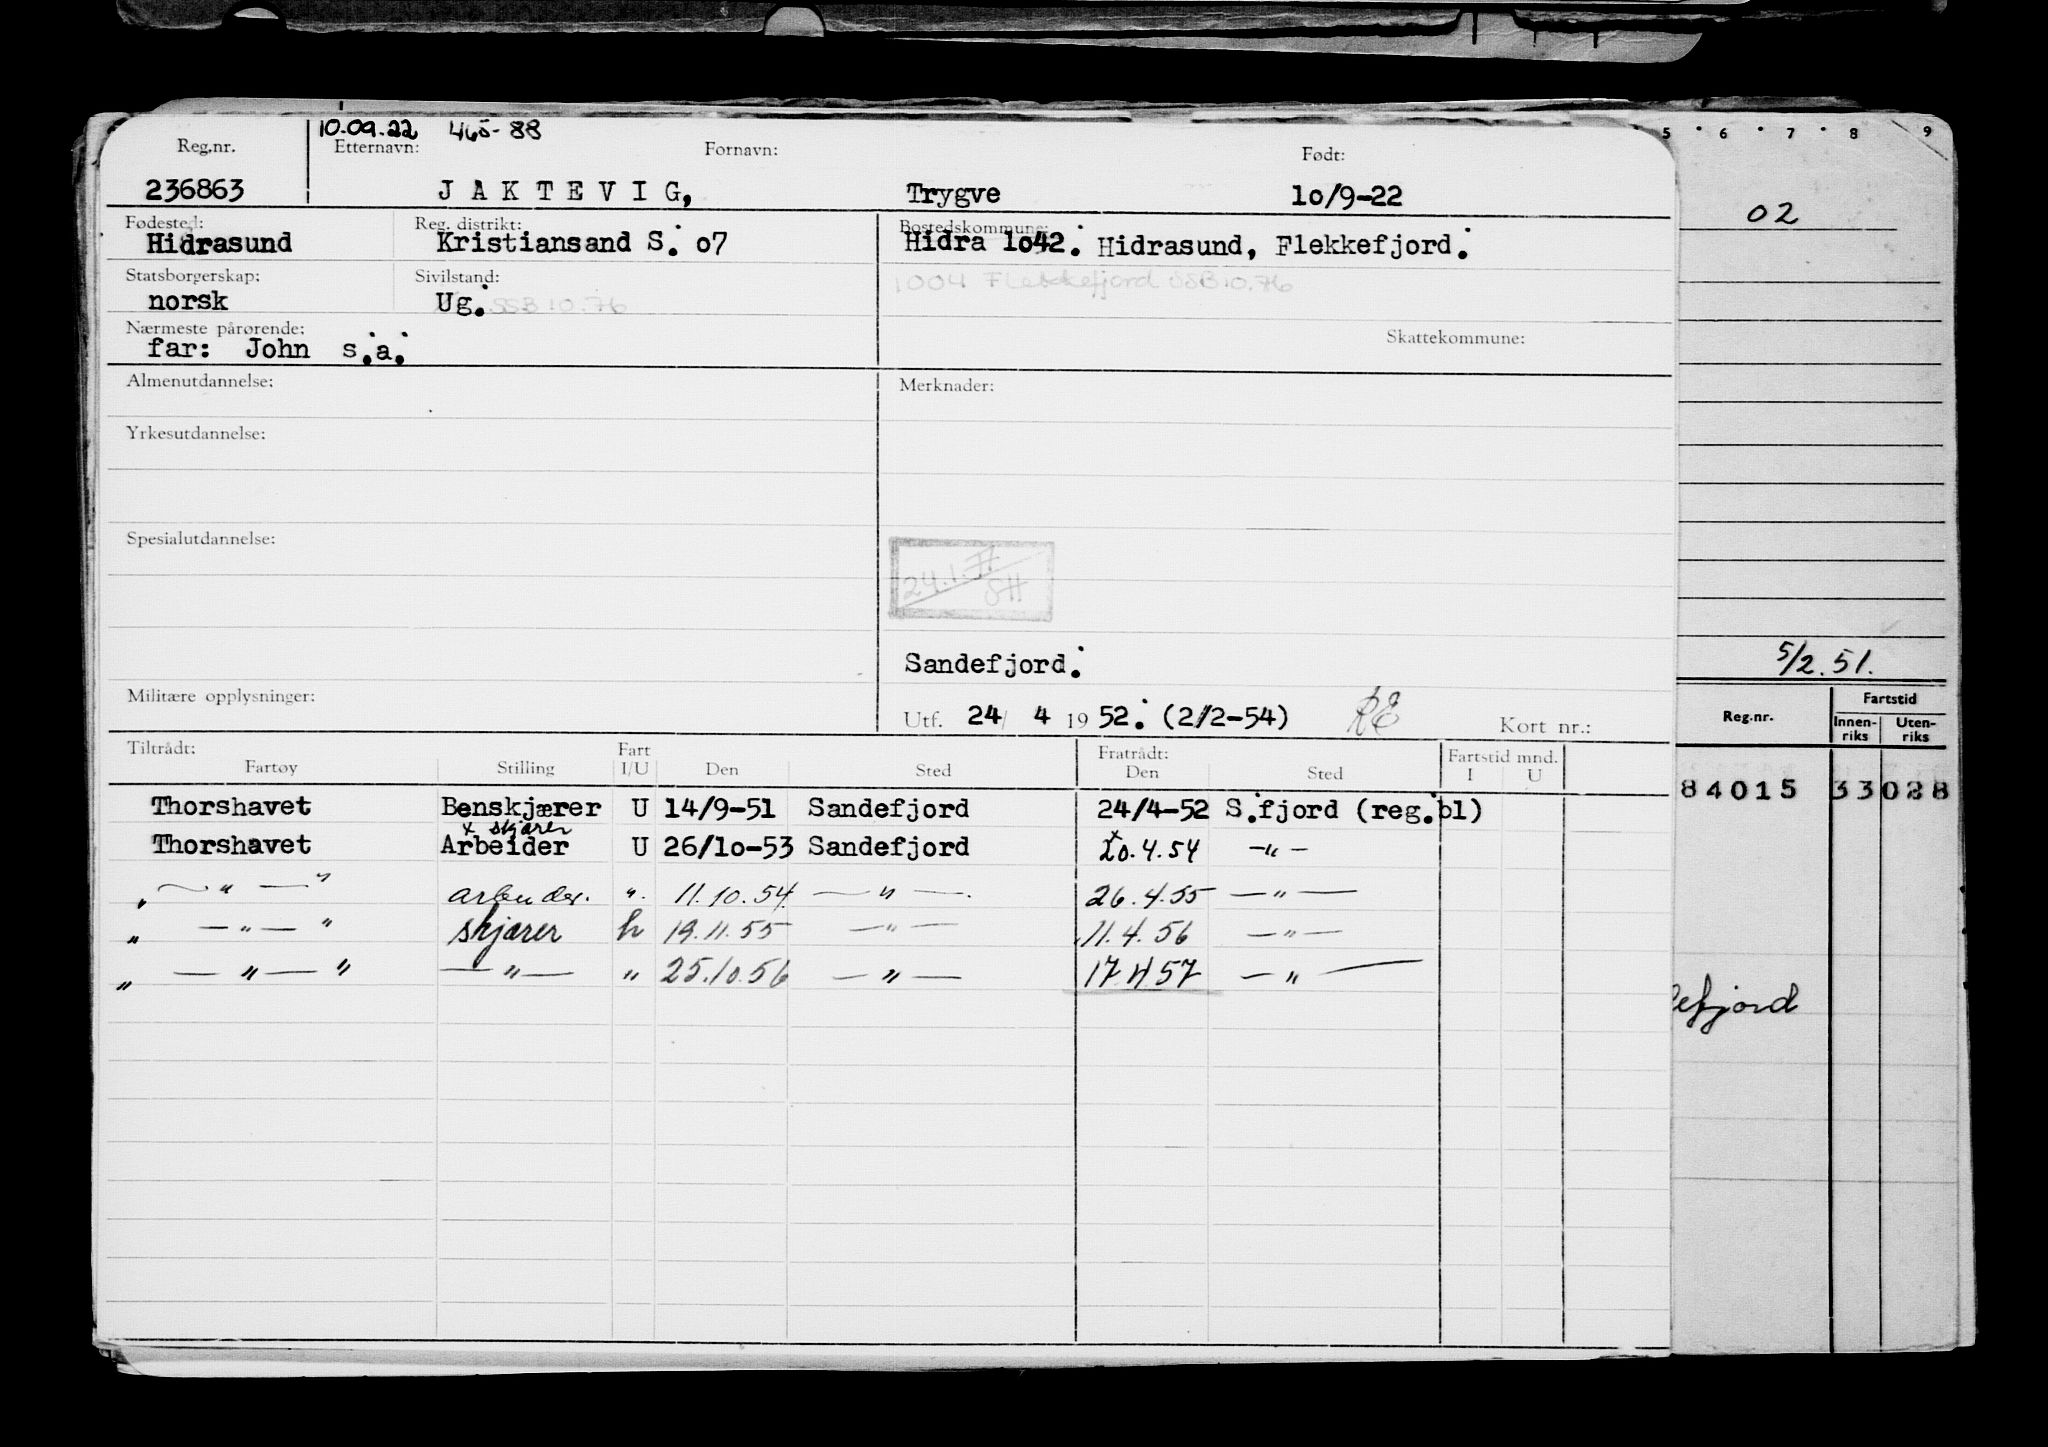 10.09.22 465-88
Reg.nr. Etternavn: Fornavn: Født:
236863 JAKTEVIG, Trygve 10/9-22
Fødested: Reg. distrikt: Bostedskommune:
Hidrasund Kristiansand S. o7 Hidra 1o42. Hidrasund, Flekkefjord.
Statsborgerskap: Sivilstand: 1004 Flekkefjord SSB 10.76
norsk Ug. SSB 10.76
Nærmeste pårørende: Skattekommune:
far: John s.a.
Almenutdannelse: Merknader:
Yrkesutdannelse:
Spesialutdannelse:
24.1. SH
Sandefjord.
Militære opplysninger:
Utf. 24/ 4 1952. (2/2-54) RE Kort nr.:
Tiltrådt: Fart Fratrådt: Fartstid mnd.
Fartøy Stilling I/U Den Sted Den Sted I U
Thorshavet Benskjærer U 14/9-51 Sandefjord 24/4-52 S.fjord (reg.bl)
x skjærer
Thorshavet Arbeider U 26/1o-53 Sandefjord 20.4.54 —"—
" —"—" arbeider. ". 11.10.54. —"—. 26.4.55 —"—
" —"—" skjærer h 19.11.55 —"— 11.4.56 —"—
" —"—" —"— " 25.10.56 —"— 17.4.57 —"—
5 6 7 8 9
02
5/2.51.
Reg.nr. Fartstid
Innen-riks Uten-riks
84015 33 028
efjord